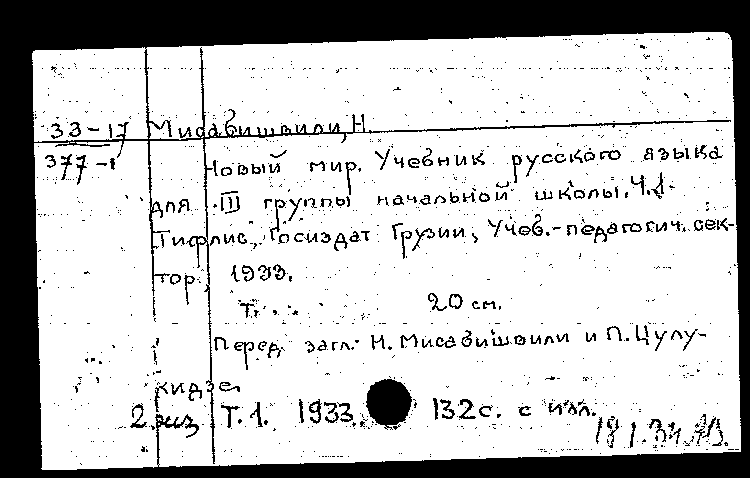 33-17 Мисабишвили, Н.
377-1
Новый мир. Учебник русского языка
для III группы начальной школы. Ч.1.
Тифлис, Госиздат Грузии, Учеб.-педагогич. сек-
тор, 1933.
Т. . . . 20 см.
Перед загл: Н. Мисабишвили и П. Цулу-
кидзе.
2 экз Т. 1. 1933. 132 с. с илл.
18 1.34